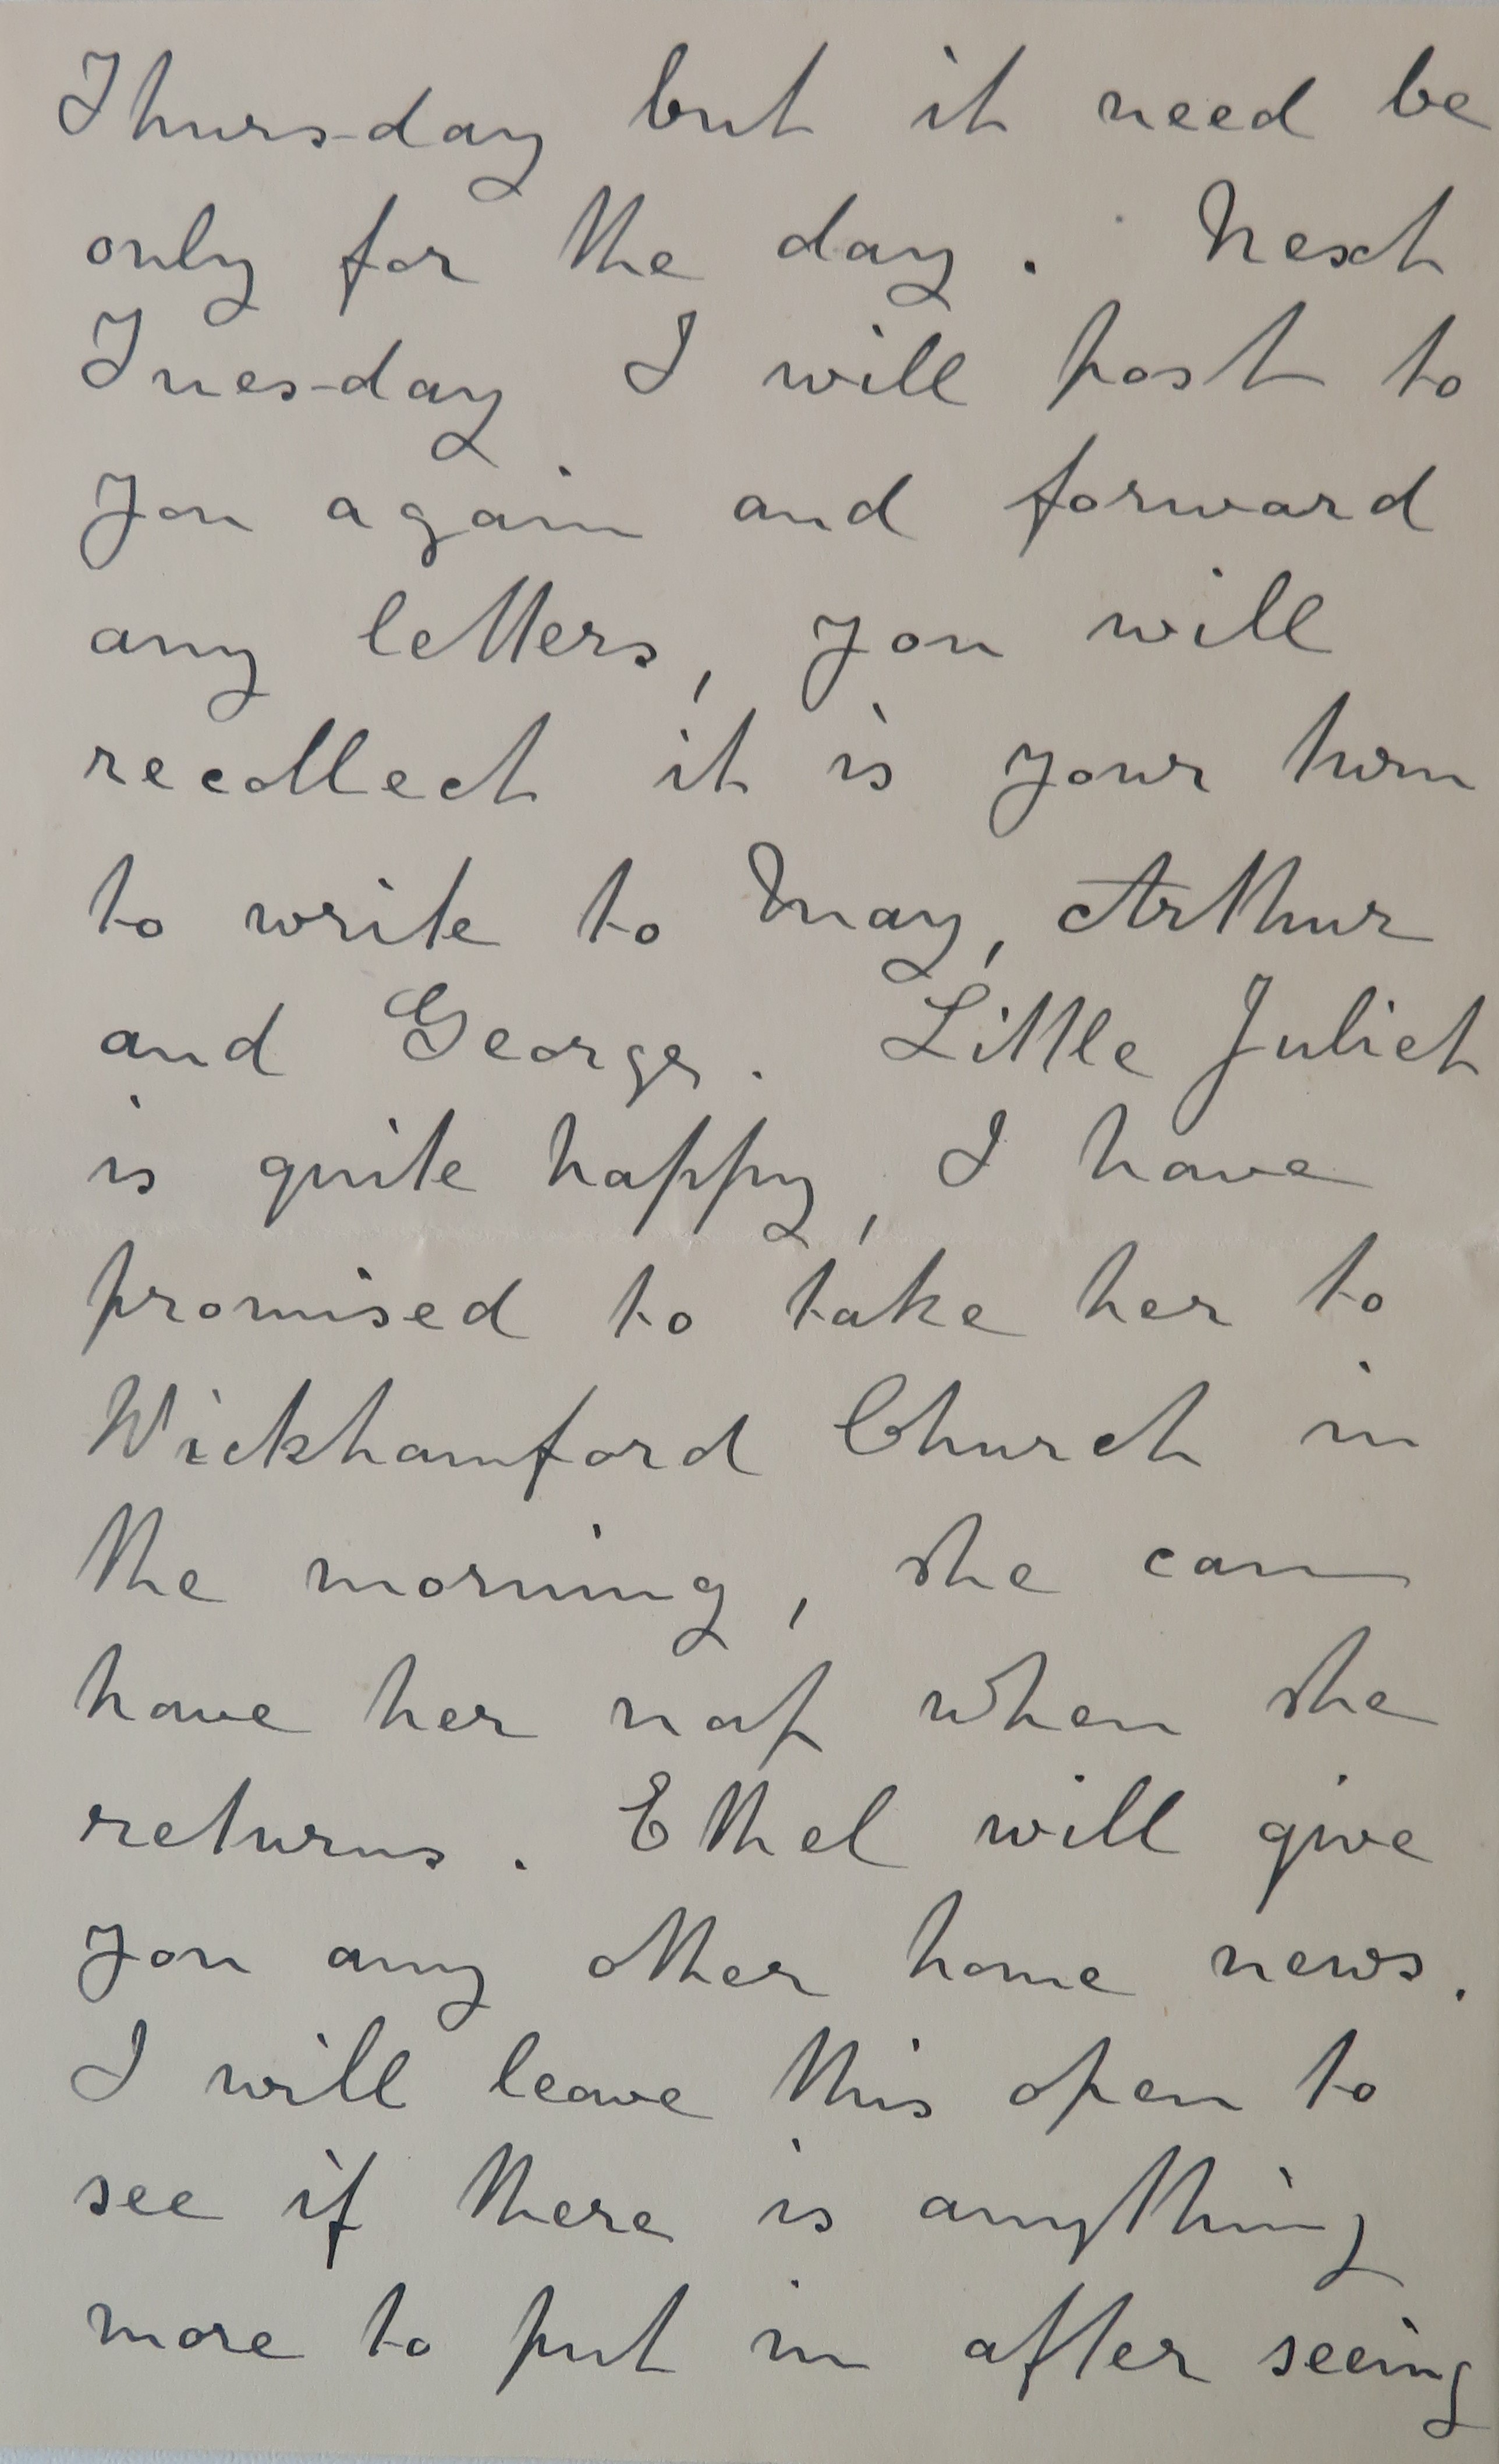 Thursday but it need be
only for the day. Next
Tuesday I will post to
you again and forward
any letters, you will
recollect it is your turn
to write to May, Arthur
and George. Little Juliet
is quite happy, I have
promised to take her to
Wickhamford Church in
the morning, she can
have her nap when she
returns. Ethel will give
you any other home news.
I will leave this open to
see if there is anything
more to put in after seeing